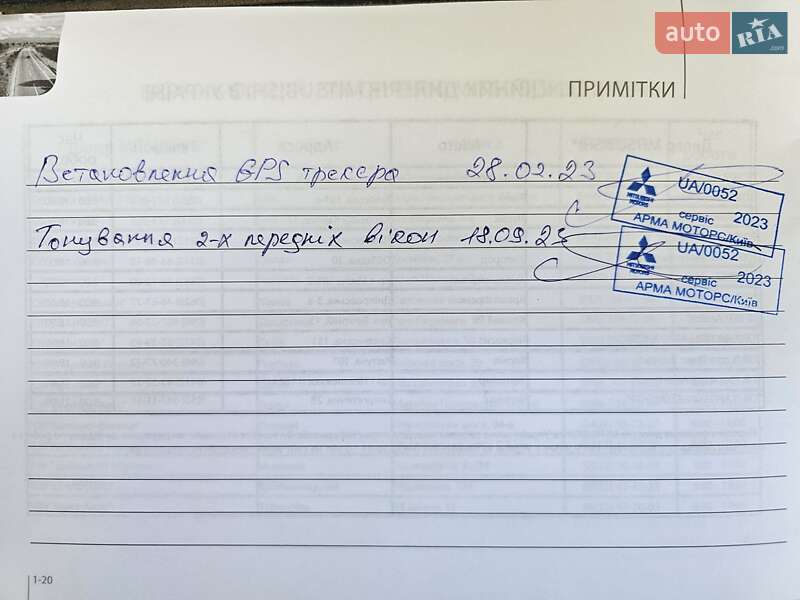 auto RIA.com
ПРИМІТКИ
Встановлення GPS трекера 28.02.23
MITSUBISHI MOTORS
UA/0052
сервіс 2023
АРМА МОТОРС/Київ
Тонування 2-х передніх вікон 18.09.23
MITSUBISHI MOTORS
UA/0052
сервіс 2023
АРМА МОТОРС/Київ
1-20